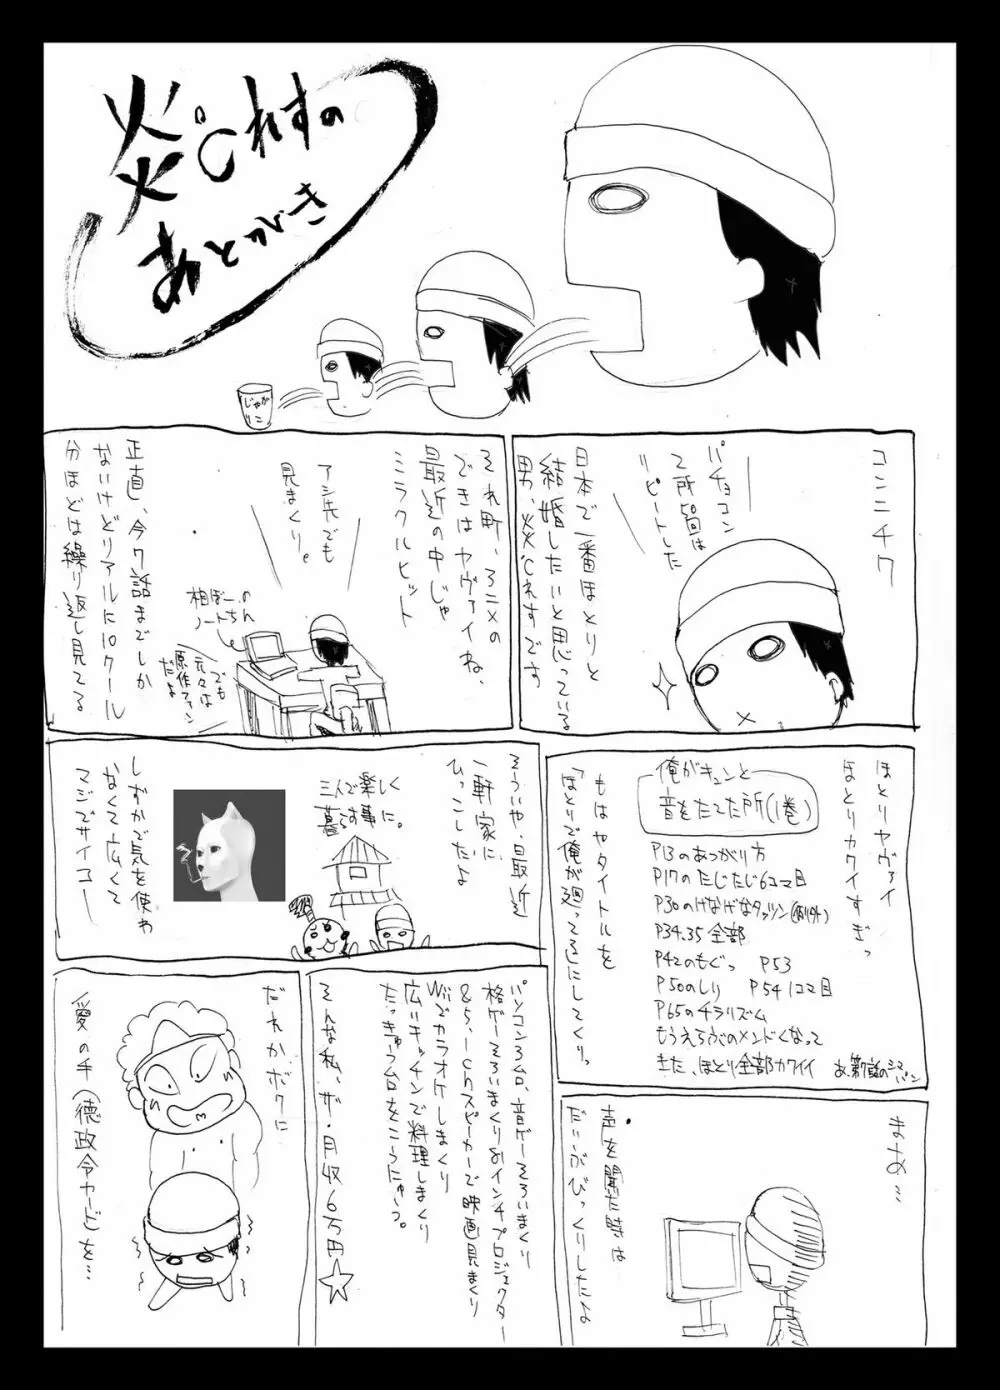 炎℃れすの
あとがき
じゃが
りこ
コンニチワ
パチョコン
て所50回は
リピートした
日本で一番ほとりと
結婚したいと思っている
男、炎℃れすです
それ町、アニメの
できはヤヴァイね、
最近の中じゃ
ミラクルヒット
アシ先でも
見まくり。
相ぼーのん
ノートちん
でも
元々は
原作ファン
だよ
正直、今7話までしか
ないけどリアルに10クール
分ほどは繰り返し見てる
ほとりヤヴァイ
ほとりカワイすぎっ
俺がキュンと
音をたてた所(1巻)
P13のあつがり方
P17のたじたじ6コマ目
P30のけなげなタッツン(例外)
P34.35全部
P42のもぐっ P53
P50のしり P54 1コマ目
P65のチラリズム
もうえらぶのメンドくなって
きた、ほとり全部カワイイ
あ、第1話のシマパン
もはやタイトルを
「ほとりで俺が廻ってる」にしてくりっ
そういや、最近
一軒家に
ひっこしたよ
三人で楽しく
暮らす事に。
しずかで気を使わ
なくて広くて
マジでサイコー
まあ…
声を聞いた時は
だいぶびっくりしたな
パソコン3台、音ゲーそろいまくり
格ゲーそろいまくり80インチプロジェクター
&5.1chスピーカーで映画見まくり
Wiiでカラオケしまくり
広いキッチンで料理しまくり
たっきゅう台をこうにゅう。
そんな私、ザ・月収6万円☆
だれかボクに
愛の手(徳政令カード)を…